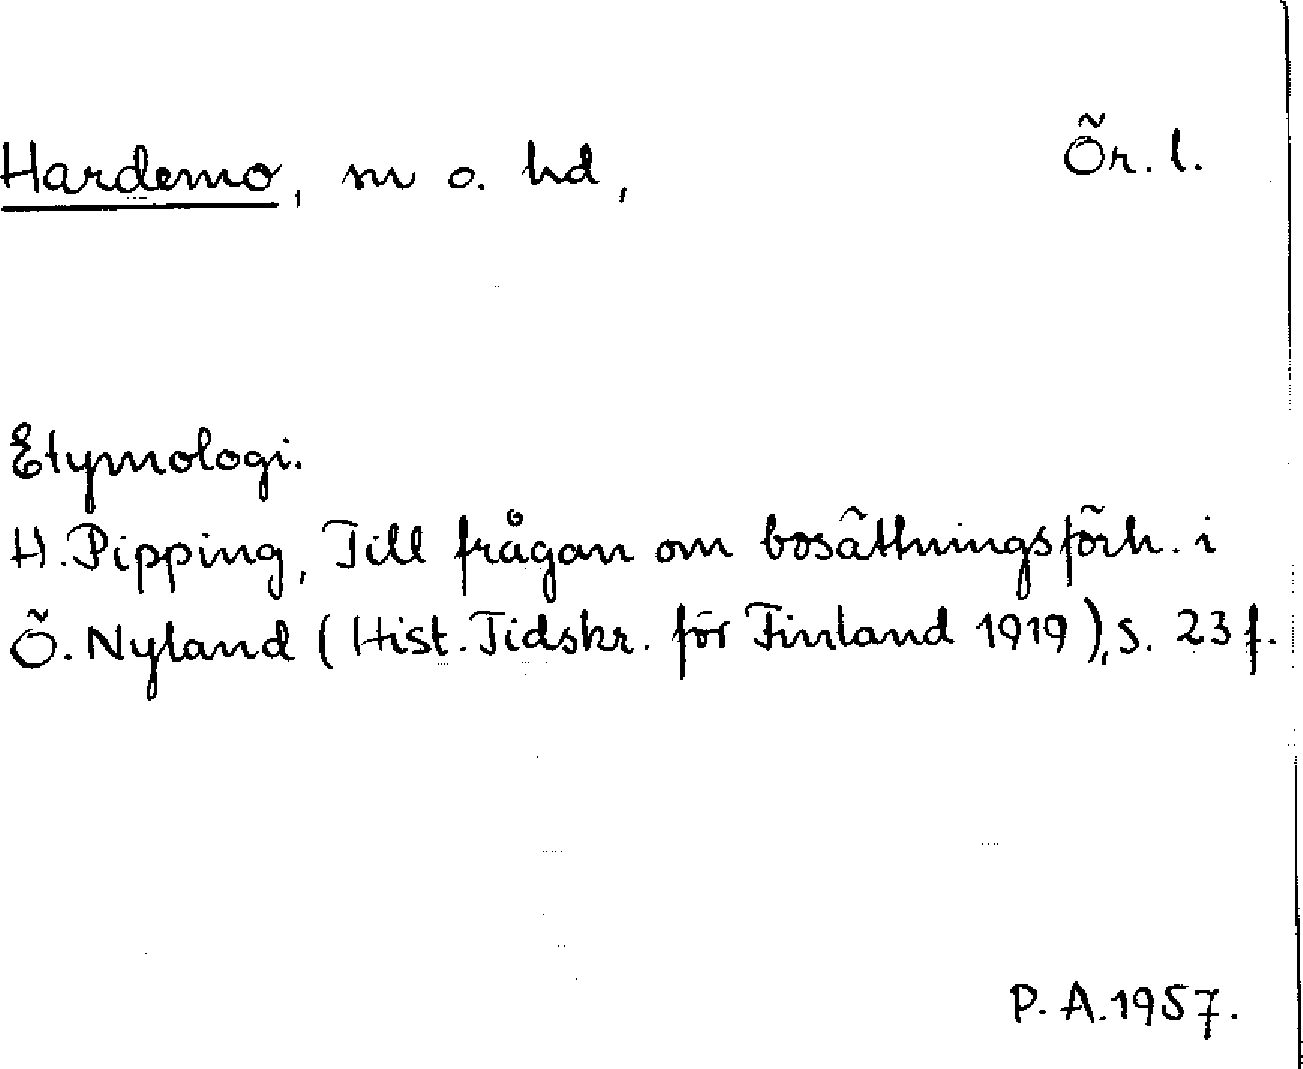 Hardemo, sn o. hd, Ör. l.
Etymologi.
H. Pipping, Till frågan om bosättningsförh. i
Ö. Nyland (Hist. Tidskr. för Finland 1919), s. 23 f.
P. A. 1957.